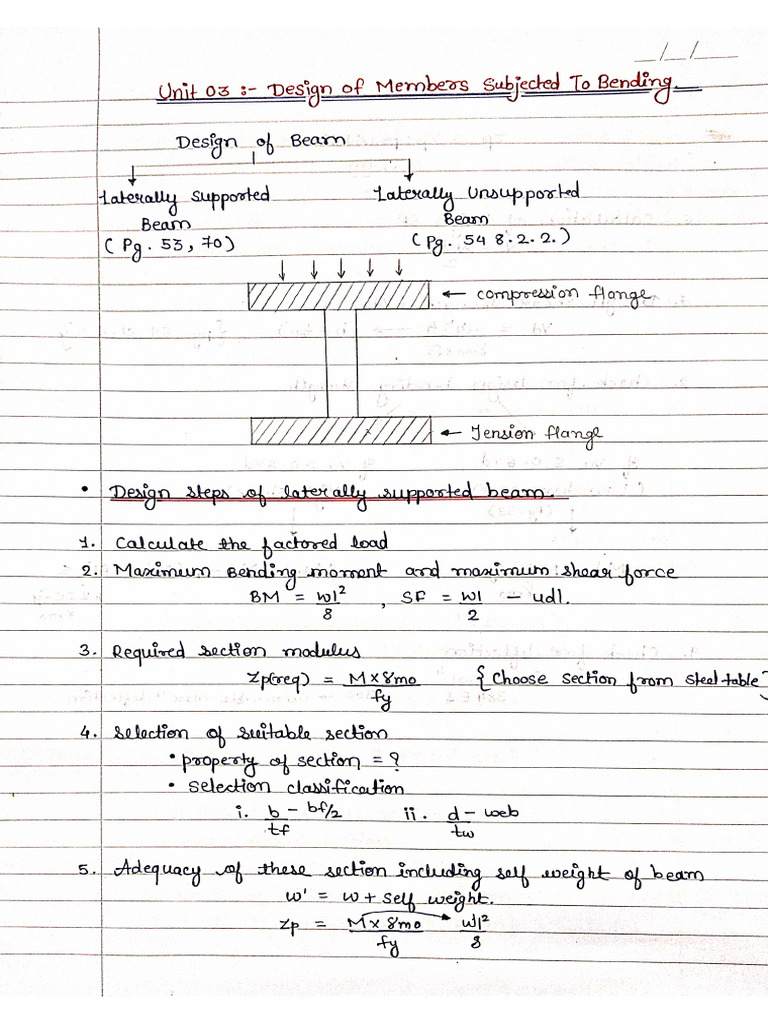 _/_/_
Unit 03 :- Design of Members Subjected To Bending.
Design of Beam
Laterally Supported Beam (Pg. 53, 70)
Laterally Unsupported Beam (Pg. 54 8.2.2.)
← compression flange
← Tension flange
• Design steps of laterally supported beam.
1. Calculate the factored load
2. Maximum Bending moment and maximum shear force
BM = wl²/8 , SF = wl/2 - udl.
3. Required section modulus
Zp(req) = M x 8mo/fy {Choose section from steel table}
4. Selection of suitable section
• property of section = ?
• selection classification
i. b/tf - bf/2 ii. d/tw - web
5. Adequacy of these section including self weight of beam
w' = w + self weight.
Zp = M x 8mo/fy w'l²/8